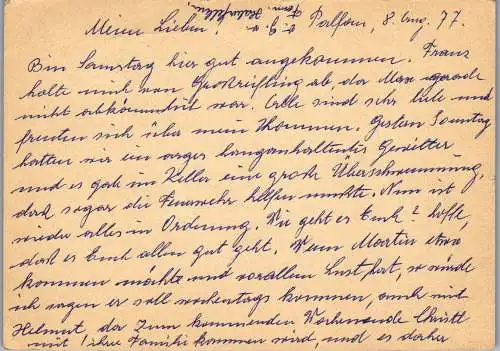 Meine Lieben! Palfau, 8. Aug. 77.
Bin Samstag hier gut angekommen. Franz
holte mich von Großreifling ab, da Max gerade
nicht abkömmlich war. Alle sind sehr liebe und
freuten sich über mein Kommen. Gestern Sonntag
hatten wir ein arges langanhaltendes Gewitter
und es gab im Keller eine große Überschwemmung,
daß sogar die Feuerwehr helfen mußte. Nun ist
wieder alles in Ordnung. Wie geht es Euch? hoffe,
daß es Euch allen gut geht. Wenn Martin etwa
kommen möchte und vorallem Lust hat, so würde
ich sagen er soll wochentags kommen, auch mit
Helmut, da zum kommenden Wochenende Christl
mit ihrer Familie kommen wird, und es daher